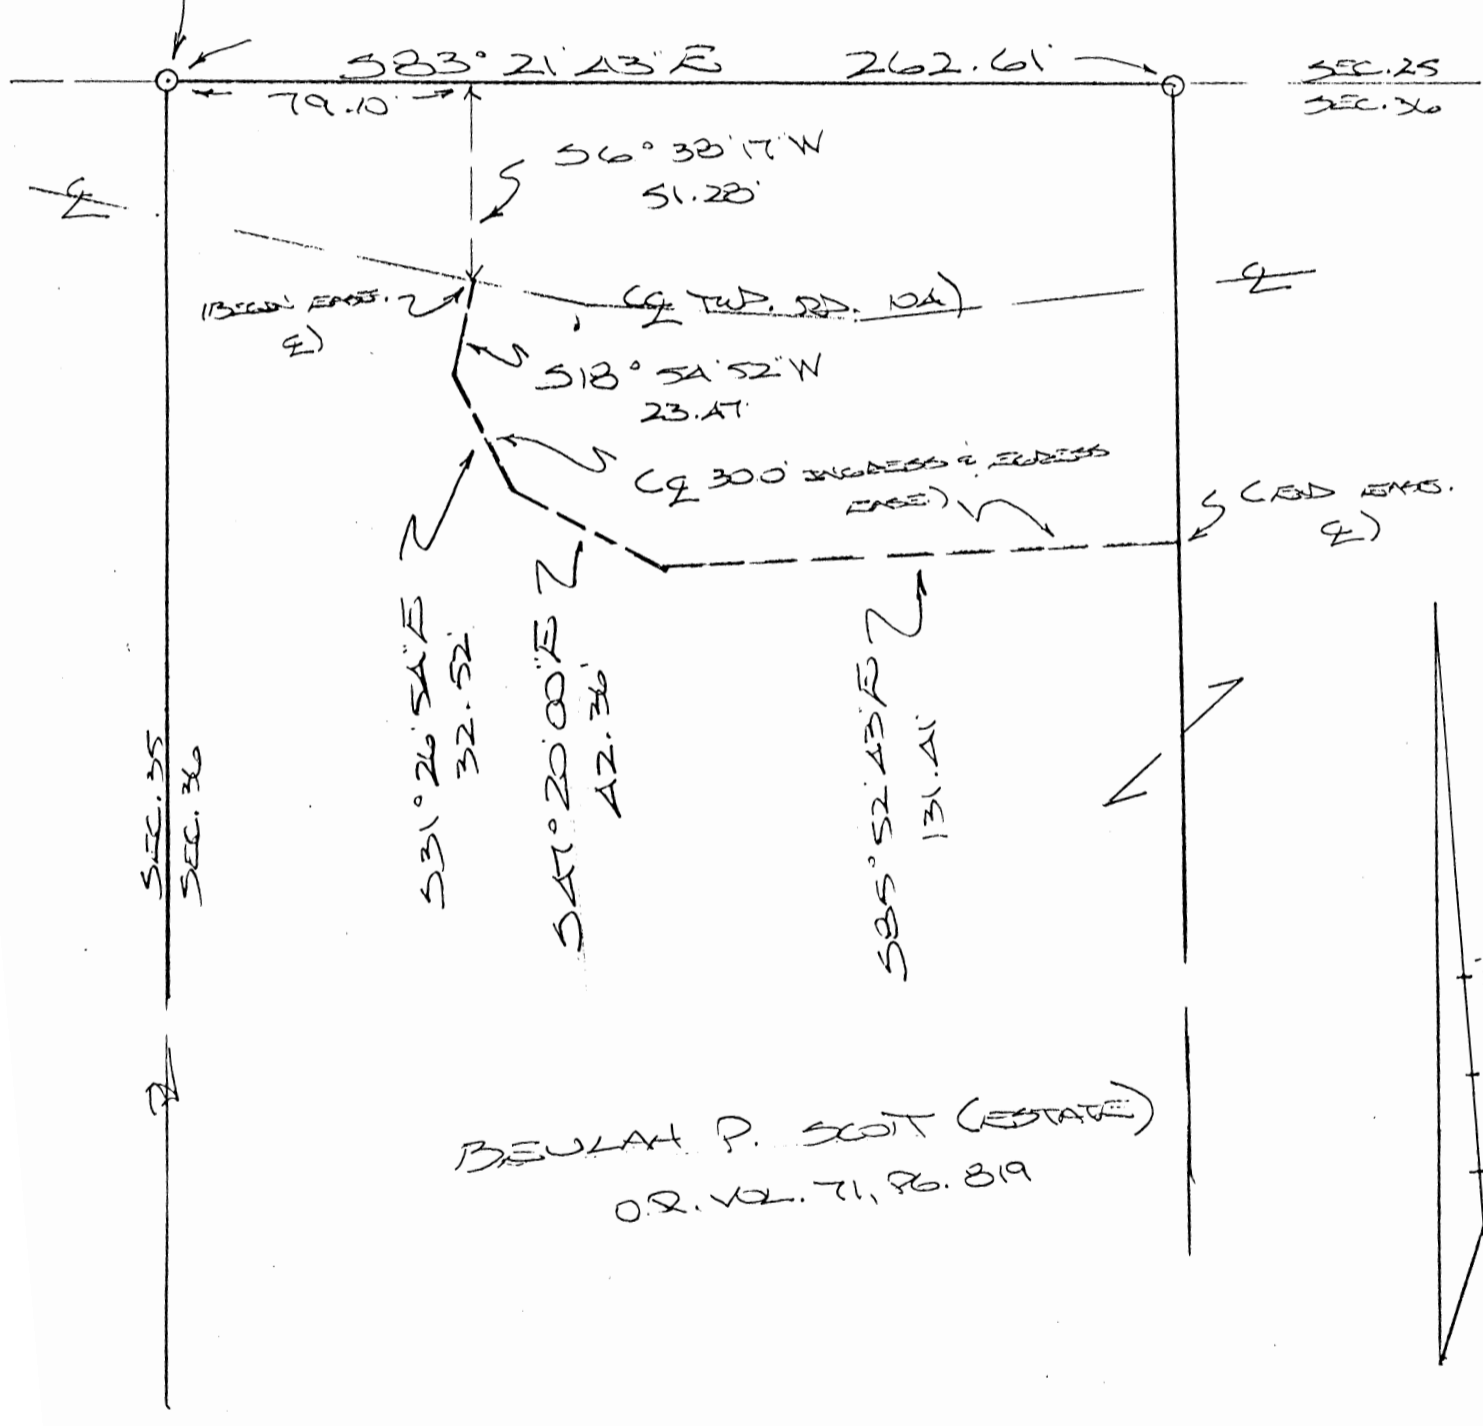 S83° 21' 43" E 262.61'
79.10'
SEC. 25
SEC. 36
S6° 38' 17" W
51.28'
℄
℄
(BEGIN EASE.
℄)
(℄ TWP. RD. 104)
S18° 54' 52" W
23.47'
(℄ 30.0' INGRESS & EGRESS
EASE)
(END EASE.
℄)
S31° 26' 54" E
32.52'
S47° 20' 00" E
42.36'
S85° 52' 43" E
131.41'
SEC. 35
SEC. 36
BEULAH P. SCOTT (ESTATE)
O.R. VOL. 71, PG. 819